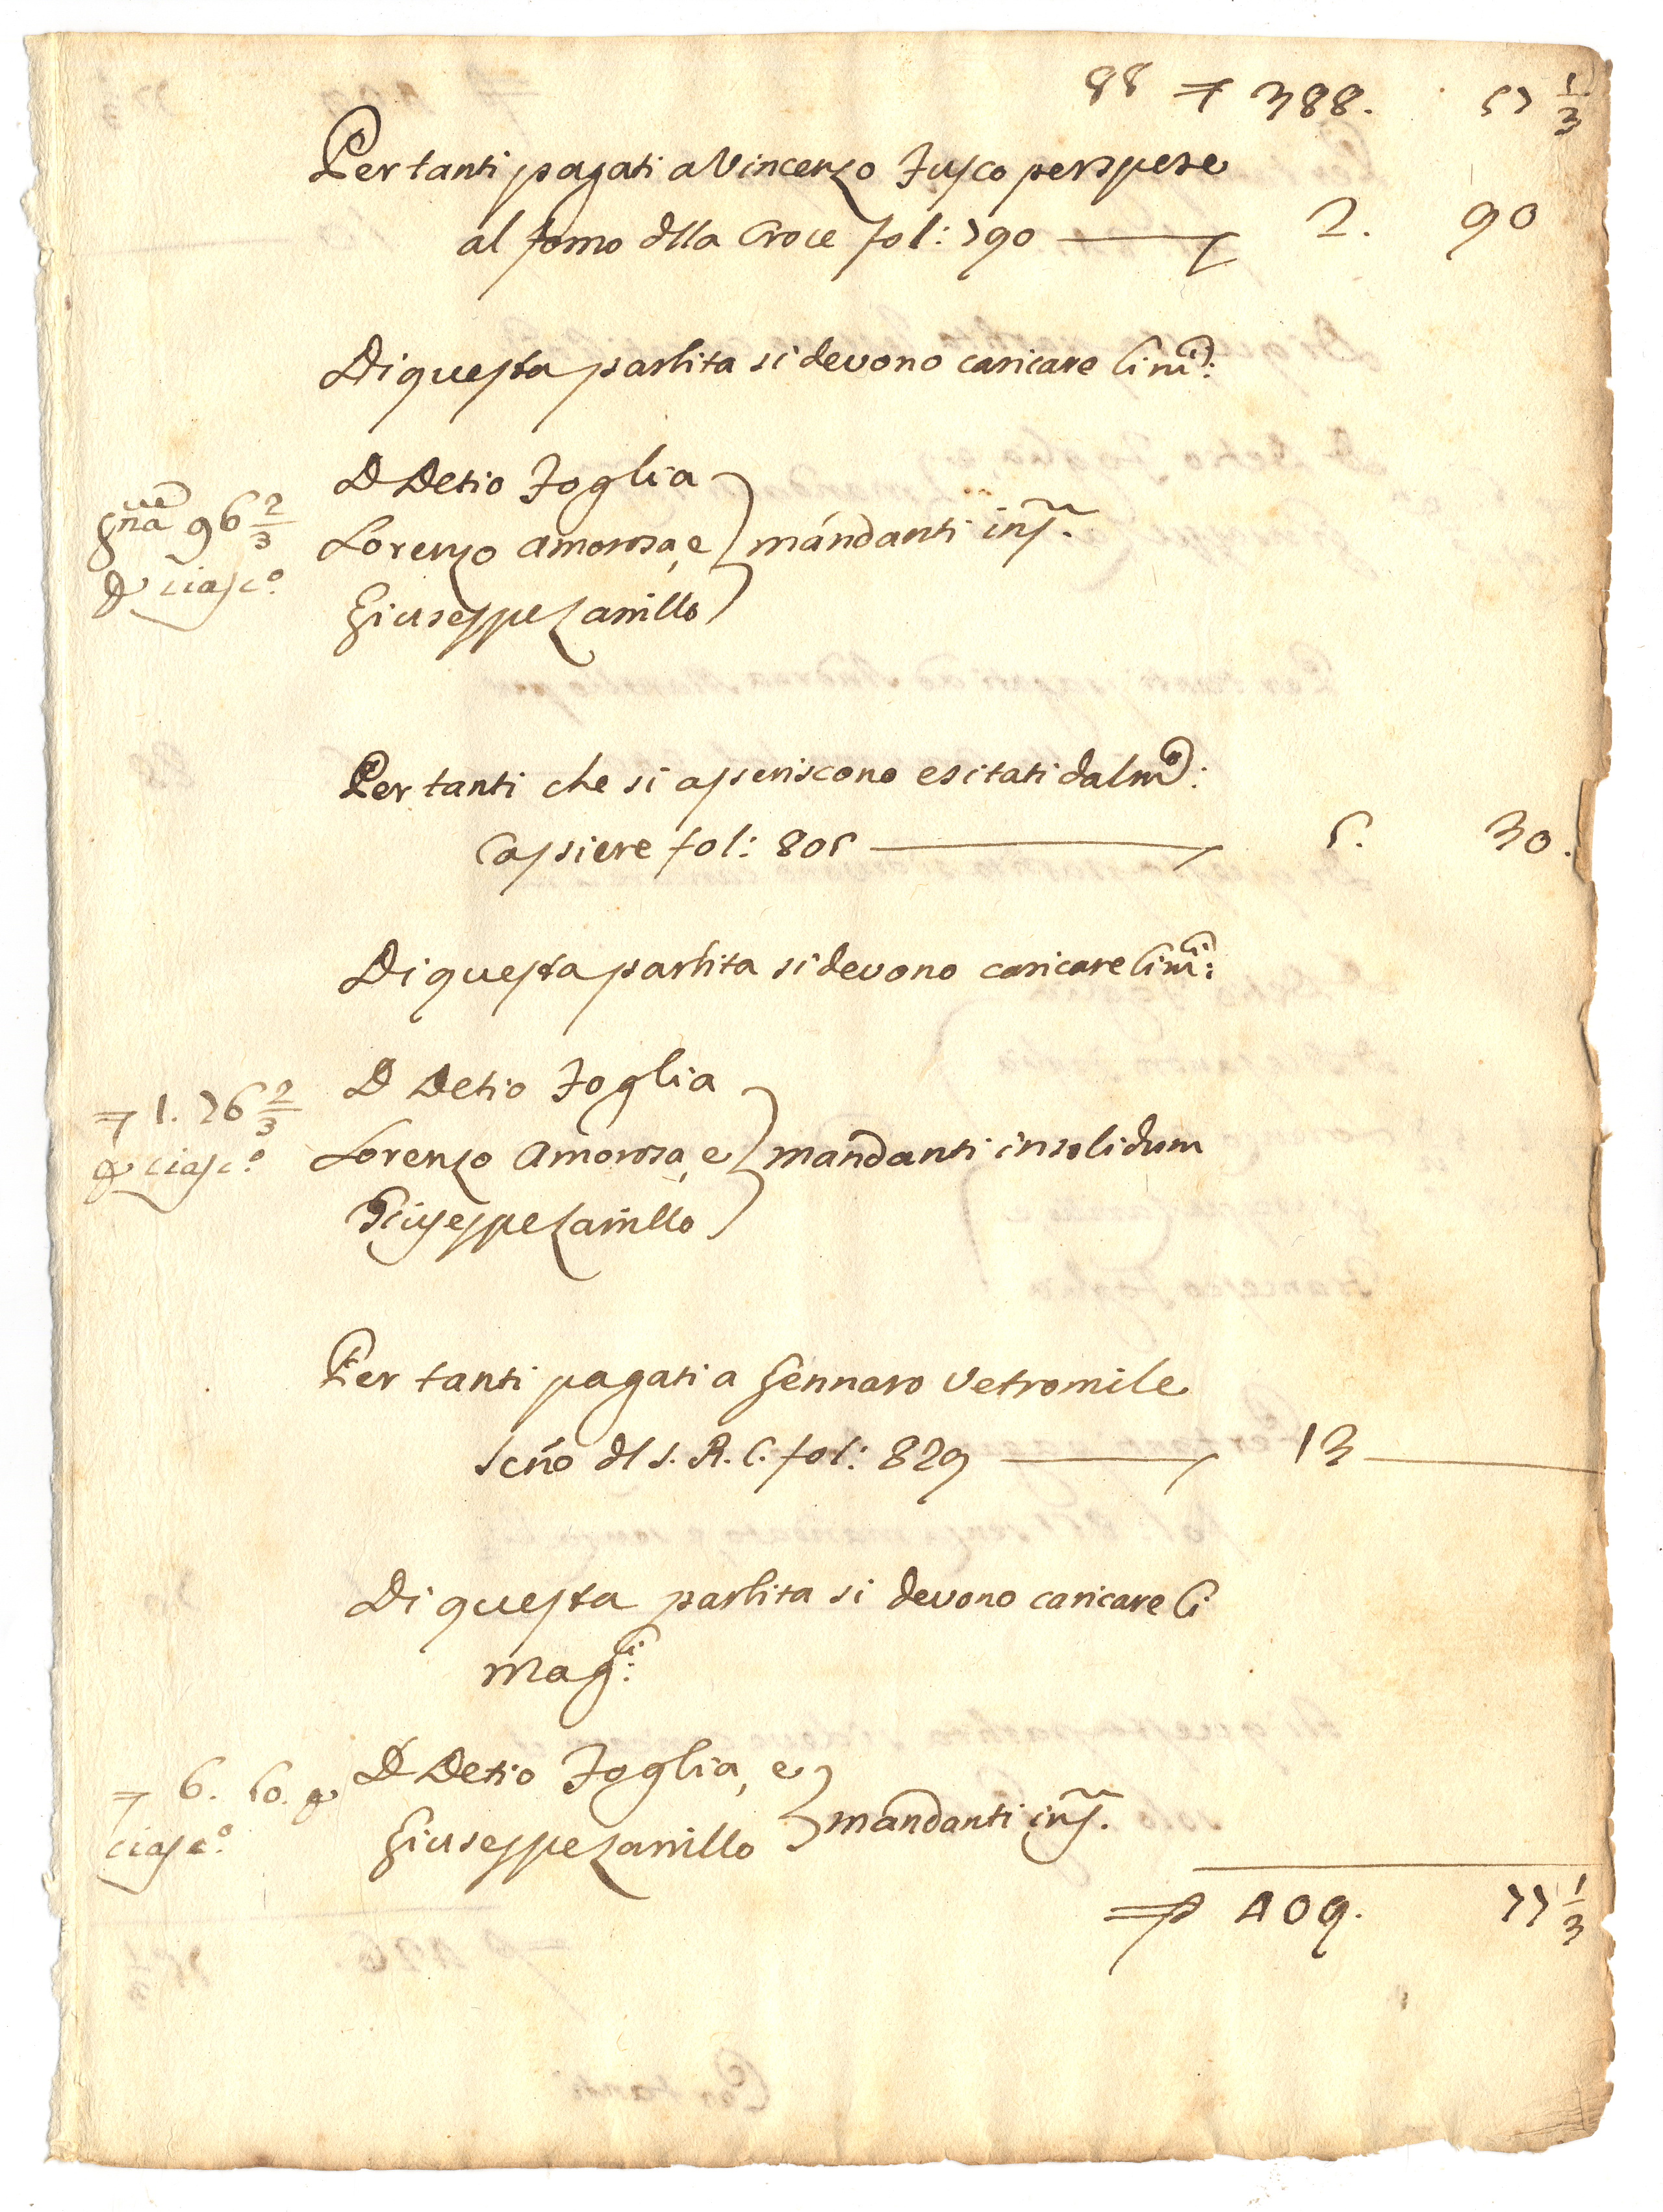 88 388. 57 1/3
Per tanti pagati a Vincenzo Fusco per spese
al forno dlla Croce fol: 790 2. 90
Di questa partita si devono caricare li mci:
D Detio Foglia
gna 96 2/3 Lorenzo Amorosa, e mandanti ins.
P ciasco. Giuseppe Zarrillo
Per tanti che si asseriscono esitati dal mco:
Cassiere fol: 805 5. 30.
Di questa partita si devono caricare li mci:
D Detio Foglia
1. 76 2/3 Lorenzo Amorosa, e mandanti insolidum
P ciasco. Giuseppe Zarrillo
Per tanti pagati a Gennaro Vetromile
Scño dl S. R. C. fol: 829 13
Di questa partita si devono caricare li
Magci:
6. 50. P D Detio Foglia, e
ciasco. Giuseppe Zarrillo mandanti ins.
409. 77 1/3